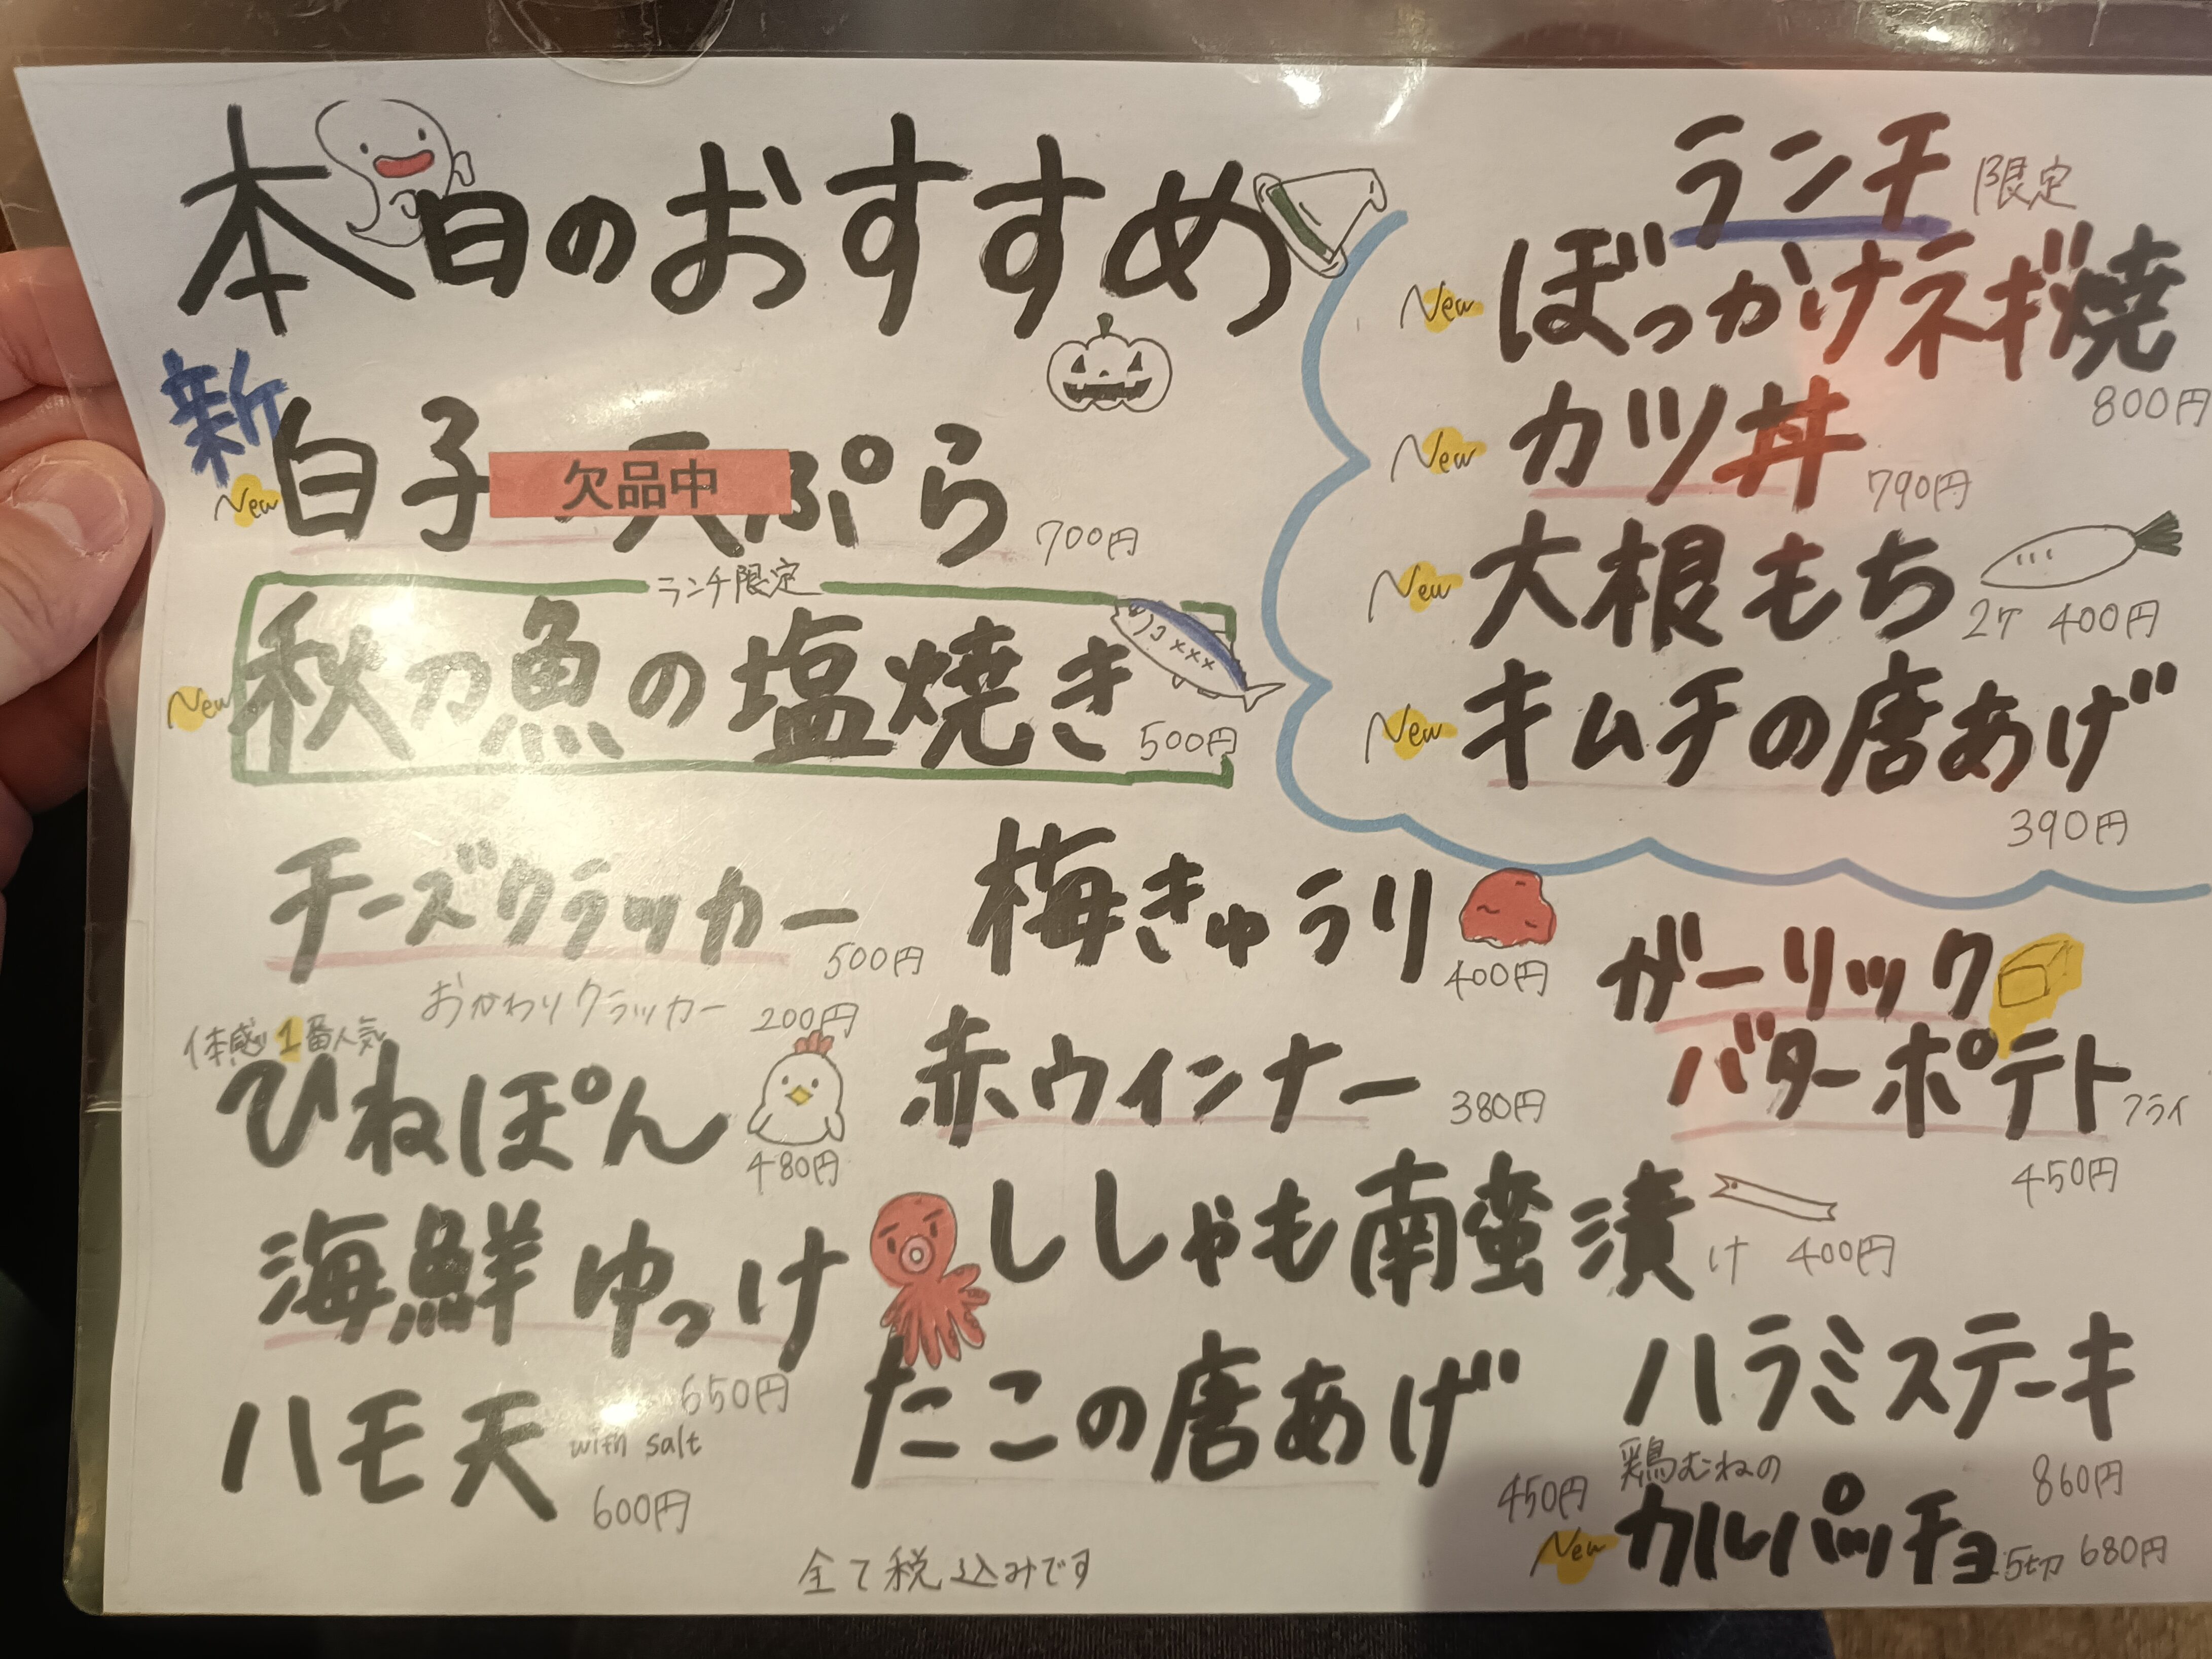 本日のおすすめ
新
New 白子 天ぷら 700円
欠品中
ランチ限定
New 秋刀魚の塩焼き 500円
ランチ 限定
New ぼっかけネギ焼 800円
New カツ丼 790円
New 大根もち 2ケ 400円
New キムチの唐あげ 390円
チーズクラッカー 500円
おかわりクラッカー 200円
梅きゅうり 400円
ガーリック
バターポテトフライ 450円
体感1番人気
ひねぽん 480円
赤ウインナー 380円
海鮮ゆっけ 650円
ししゃも南蛮漬け 400円
ハモ天 with salt 600円
たこの唐あげ 450円
ハラミステーキ 860円
鶏むねの
New カルパッチョ 5切 680円
全て税込みです